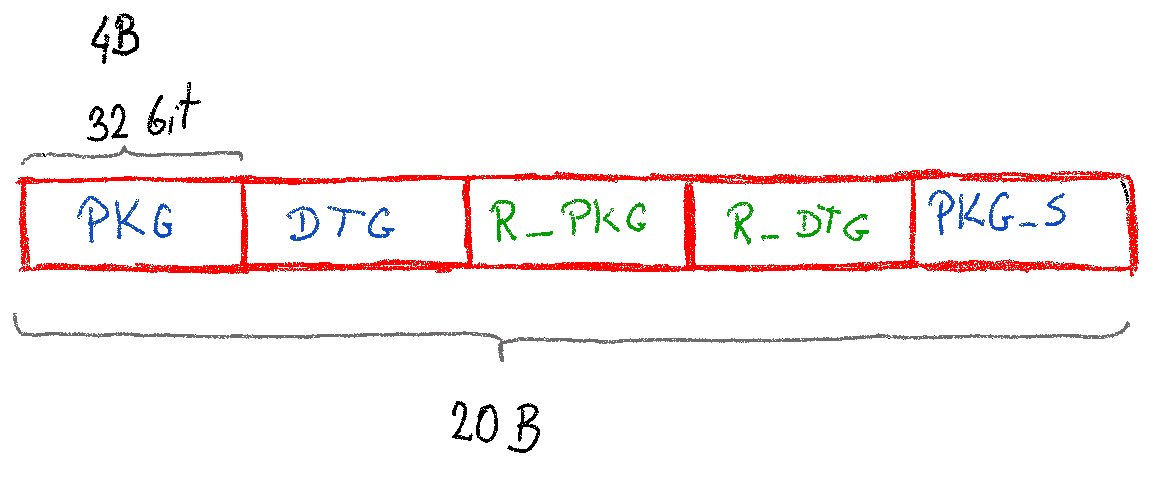 4B
32 bit
PKG DTG R_PKG R_DTG PKG_S
20 B